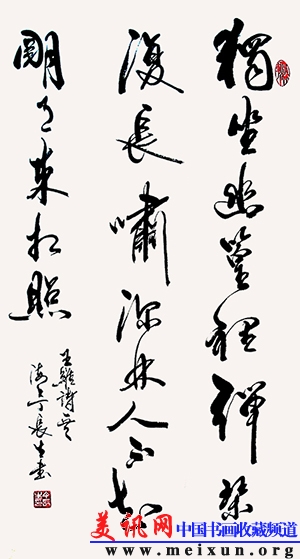 獨坐幽篁裡彈琴
復長嘯深林人不知
明月來相照
王維詩
美讯网 中国书画收藏频道
www.meixun.org